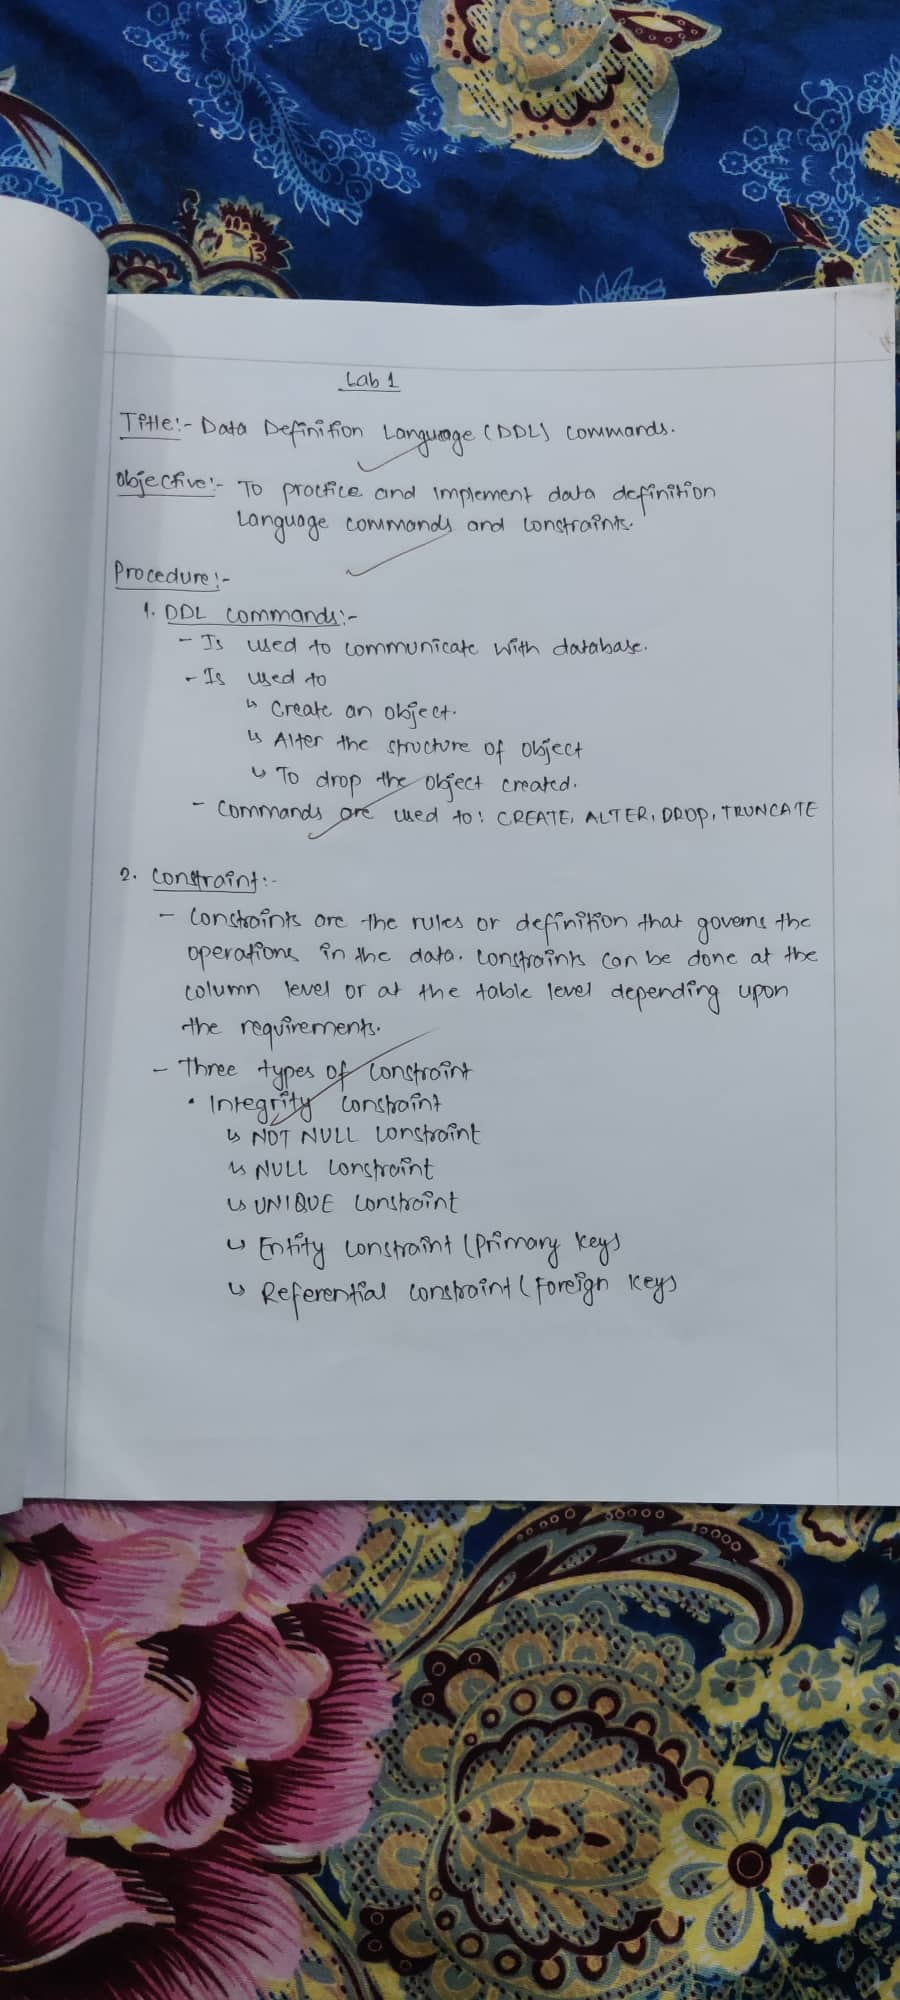 Lab 1
Title:- Data Definition Language (DDL) commands.
Objective:- To practice and implement data definition
Language commands and constraints.
Procedure:-
1. DDL commands:-
- Is used to communicate with database.
- Is used to
↳ Create an object.
↳ Alter the structure of object
↳ To drop the object created.
- Commands are used to: CREATE, ALTER, DROP, TRUNCATE
2. Constraint:-
- Constraints are the rules or definition that governs the
operations in the data. Constraints can be done at the
column level or at the table level depending upon
the requirements.
- Three types of constraint
• Integrity constraint
↳ NOT NULL constraint
↳ NULL constraint
↳ UNIQUE constraint
↳ Entity constraint (Primary key)
↳ Referential constraint (Foreign key)